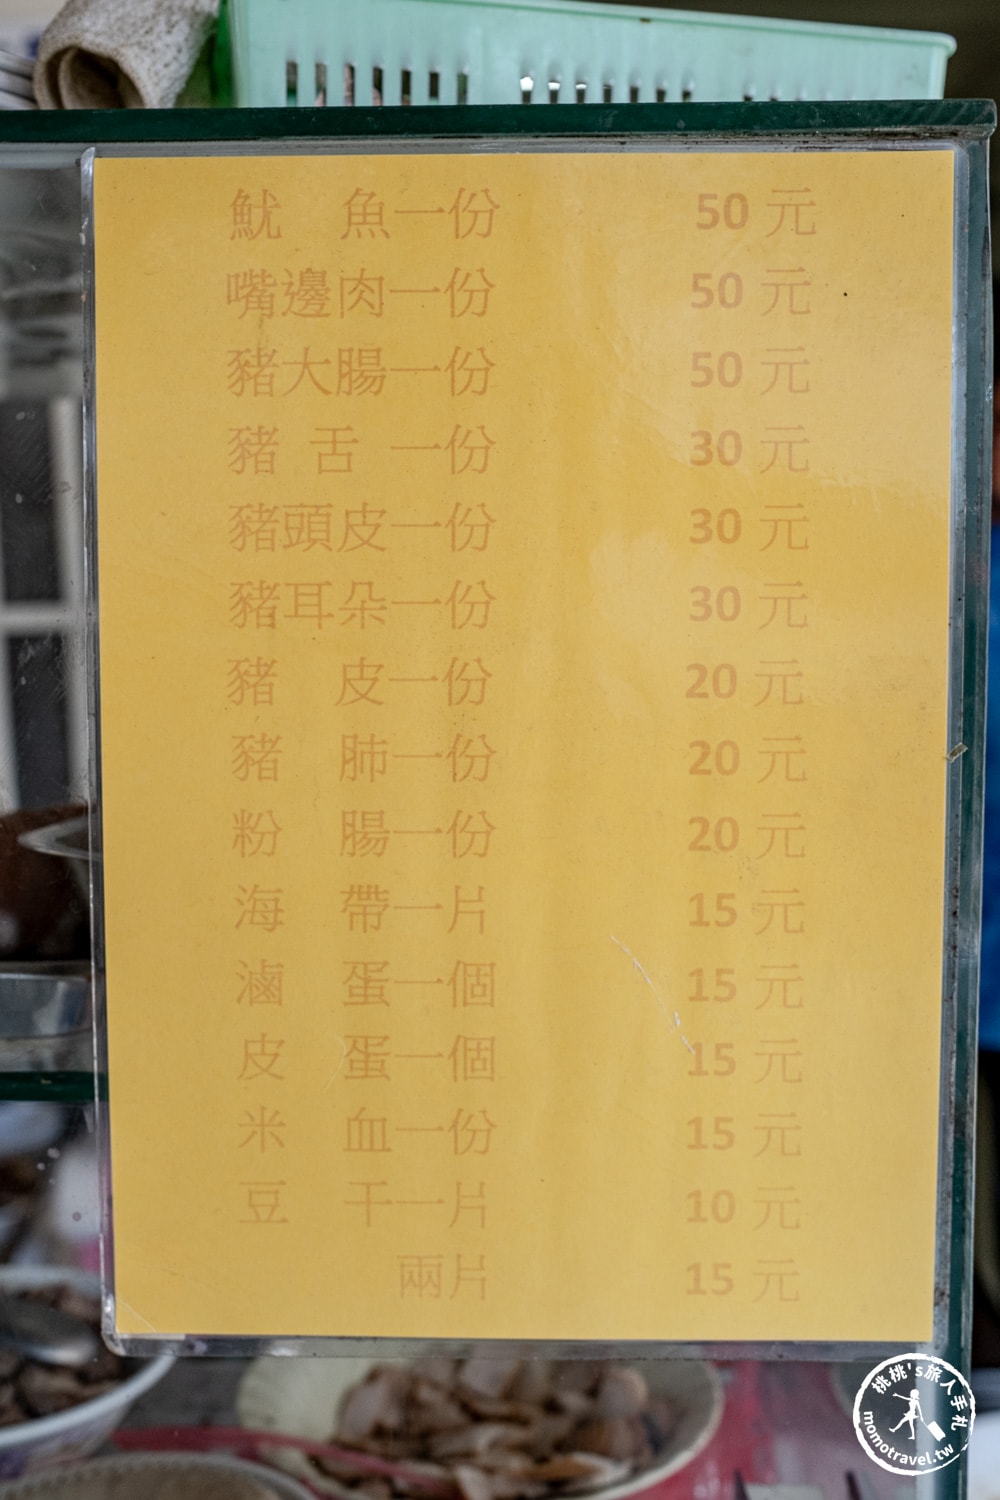 魷魚一份 50元
嘴邊肉一份 50元
豬大腸一份 50元
豬舌一份 30元
豬頭皮一份 30元
豬耳朵一份 30元
豬皮一份 20元
豬肺一份 20元
粉腸一份 20元
海帶一片 15元
滷蛋一個 15元
皮蛋一個 15元
米血一份 15元
豆干一片 10元
兩片 15元
桃桃's旅人手札
momotravel.tw